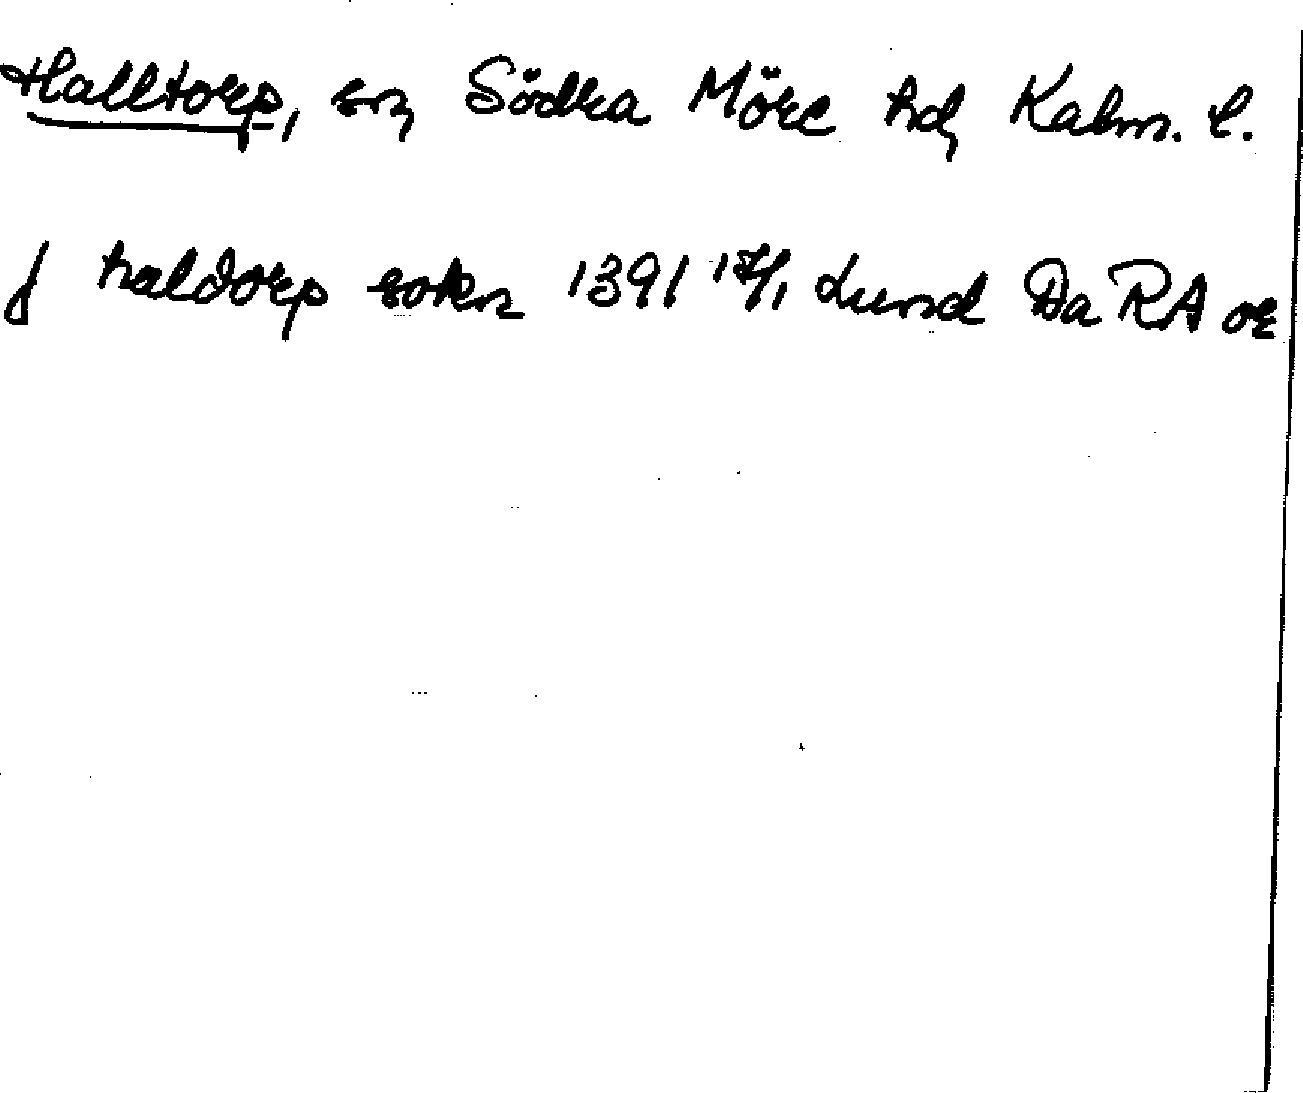 Halltorp, sn, Södra Möre hd, Kalm. l.
J haldorp sokn 1391 17/1 Lund Da RA or